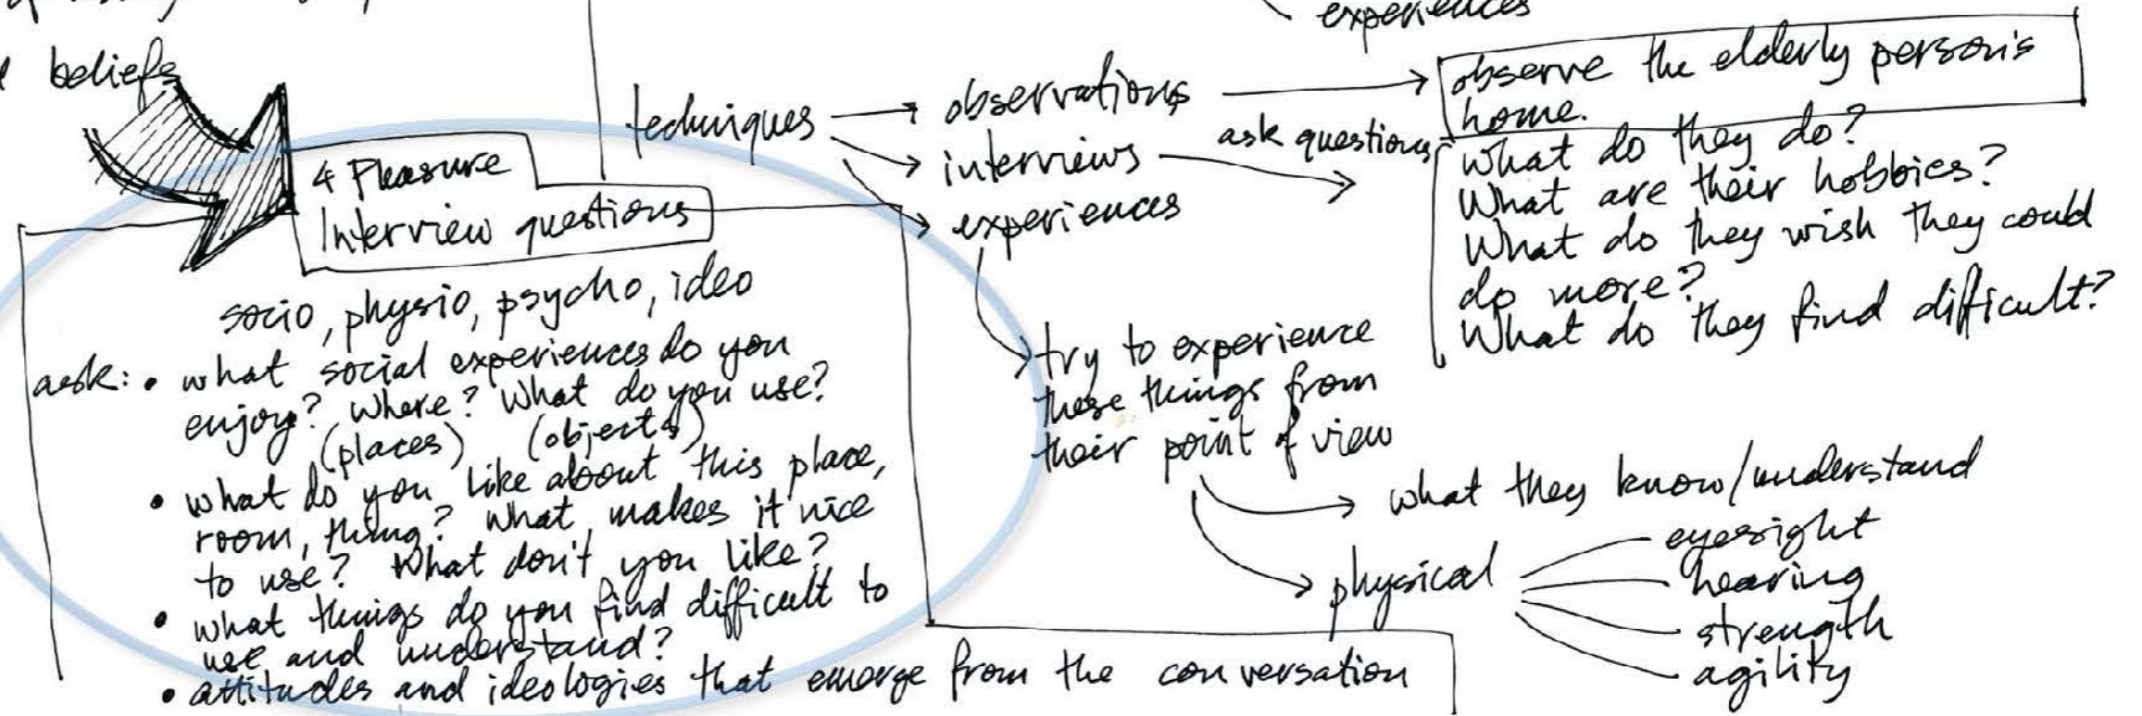 experiences
beliefs
4 Pleasure
Interview questions
socio, physio, psycho, ideo
ask: • what social experiences do you
enjoy? Where? What do you use?
(places) (objects)
• what do you like about this place,
room, thing? What makes it nice
to use? What don't you like?
• what things do you find difficult to
use and understand?
• attitudes and ideologies that emerge from the conversation
techniques
observations
interviews
experiences
observe the elderly person's
home.
ask questions
What do they do?
What are their hobbies?
What do they wish they could
do more?
What do they find difficult?
try to experience
these things from
their point of view
what they know/understand
physical
eyesight
hearing
strength
agility